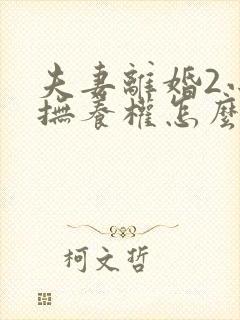 夫妻離婚2
撫養權怎麼
柯文哲